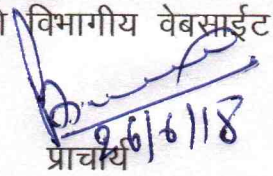 विभागीय वेबसाईट
26/6/18
प्राचार्य